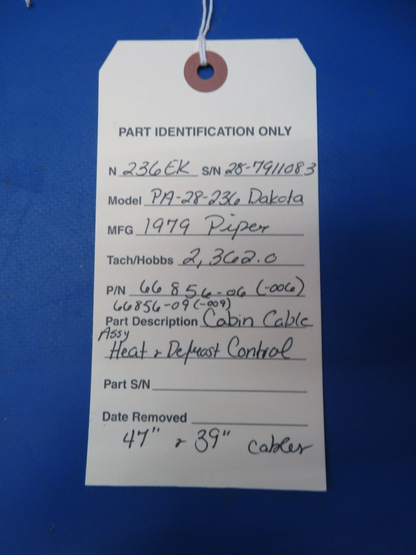 PART IDENTIFICATION ONLY
N 236EK S/N 28-7911083
Model PA-28-236 Dakota
MFG 1979 Piper
Tach/Hobbs 2,362.0
P/N 66856-06 (-006)
66856-09 (-009)
Part Description Cabin Cable
Assy
Heat & Defrost Control
Part S/N
Date Removed
47" & 39" cables